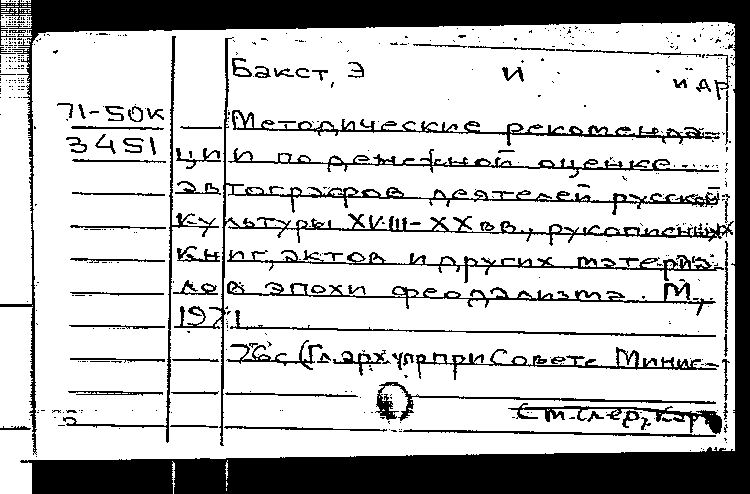 Бакст, Э И и др
71-50к
3451
Методические рекоменда-
ции по денежной оценке
автографов деятелей русской
культуры XVIII-XX вв., рукописных
книг, актов и других материа-
лов эпохи феодализма. М.,
1971
76с (Гл. арх упр при Совете Минис-
См. след. карт